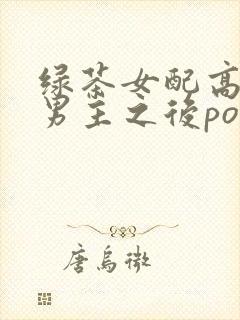 绿茶女配高
男主之後po
唐乌微